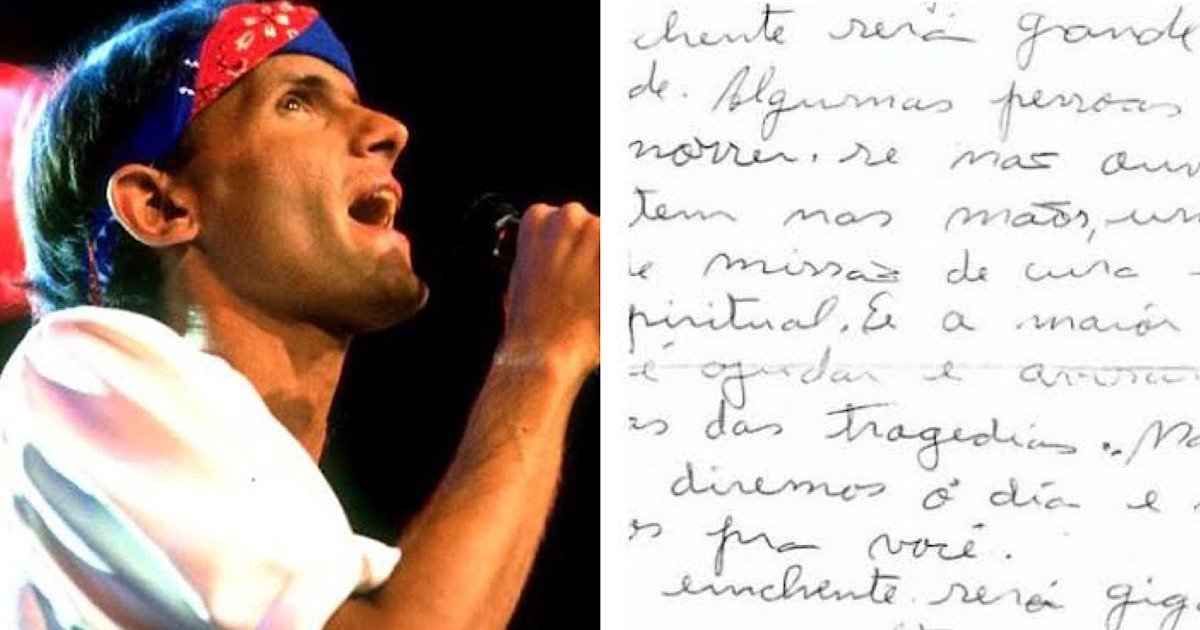 chente será grande
de. Algumas pessoas
morrer. se nas ouv
tem nas mãos, um
e missão de cura
piritual. Ee a maiór
é ajudar e avisar
as das tragedias.. Na
diremos o dia e
es pra você.
emchente será gig